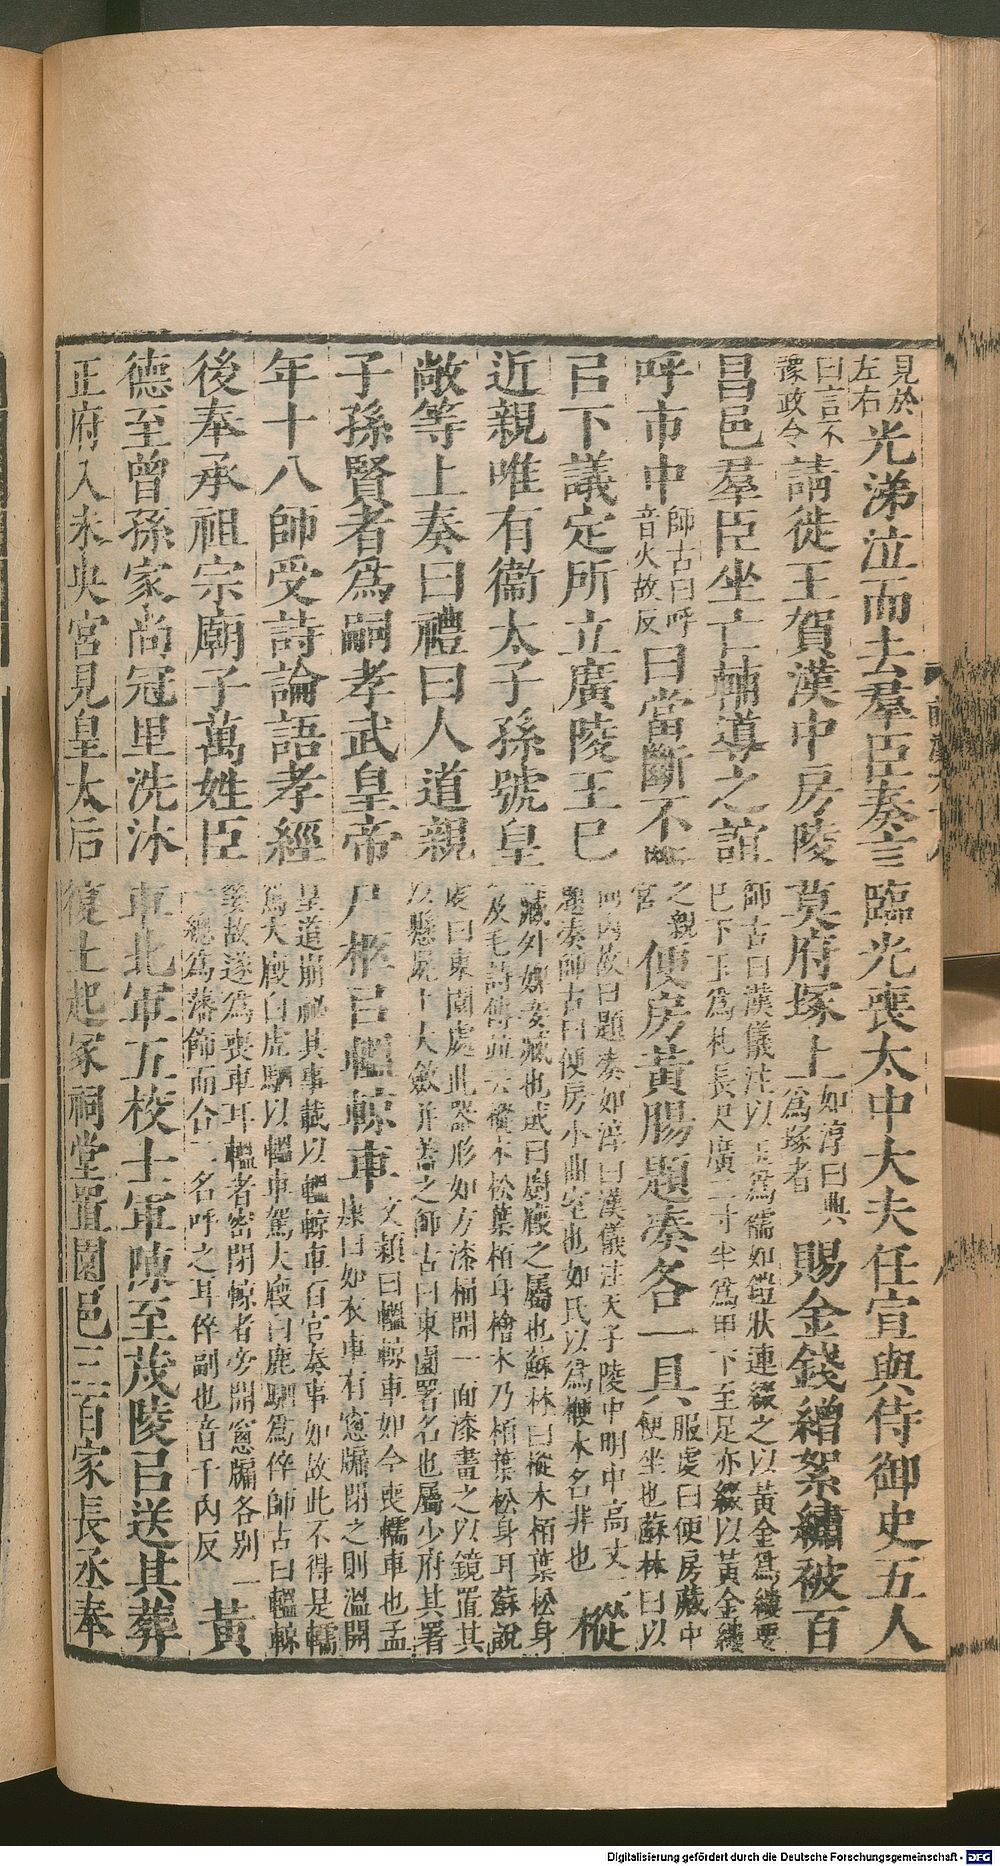 見於左右光涕泣而去羣臣奏言臨光喪太中大夫任宣與侍御史五人
曰言不豫政令請徙王賀漢中房陵莫府塚上如淳曰典為塚者賜金錢繒絮繡被百
昌邑羣臣坐亡輔導之誼師古曰漢儀注以玉為襦如鎧狀連綴之以黃金為縷要已下玉為札長尺廣二寸半為甲下至足亦綴以黃金縷
呼市中師古曰呼音火故反曰當斷不之親宮便房黃腸題湊各一具服虔曰便房藏中便坐也蘇林曰以
㠯下議定所立廣陵王已向內故曰題湊如淳曰漢儀注天子陵中明中高丈二題湊師古曰便房小曲室也如氏以為楩木名非也樅
近親唯有衞太子孫號皇臧外婢妾臧也或曰廚廏之屬也蘇林曰樅木柏葉松身及毛詩傳並云樅木松葉柏身檜木乃柏葉松身耳蘇說
敞等上奏曰禮曰人道親虔曰東園處此器形如方漆桶開一面漆畫之以鏡置其以懸屍上大斂并蓋之師古曰東園署名也屬少府其署
子孫賢者爲嗣孝武皇帝尸柩㠯轀輬車文穎曰轀輬車如今喪轜車也孟康曰如衣車有窻牖閉之則溫開
年十八師受詩論語孝經皇道崩祕其事載以轀輬車百官奏事如故此不得是轜為大廄白虎駟以轀車駕大廄白鹿駟為倅師古曰轀輬
後奉承祖宗廟子萬姓臣喪故遂為喪車耳轀者密閉輬者旁開窻牖各別一總為藩飾而合二名呼之耳倅副也音千內反黃
德至曾孫家尚冠里洗沐車北軍五校士軍陳至茂陵㠯送其葬
正府入未央宮見皇太后復土起冢祠堂置園邑三百家長丞奉
Digitalisierung gefördert durch die Deutsche Forschungsgemeinschaft - DFG